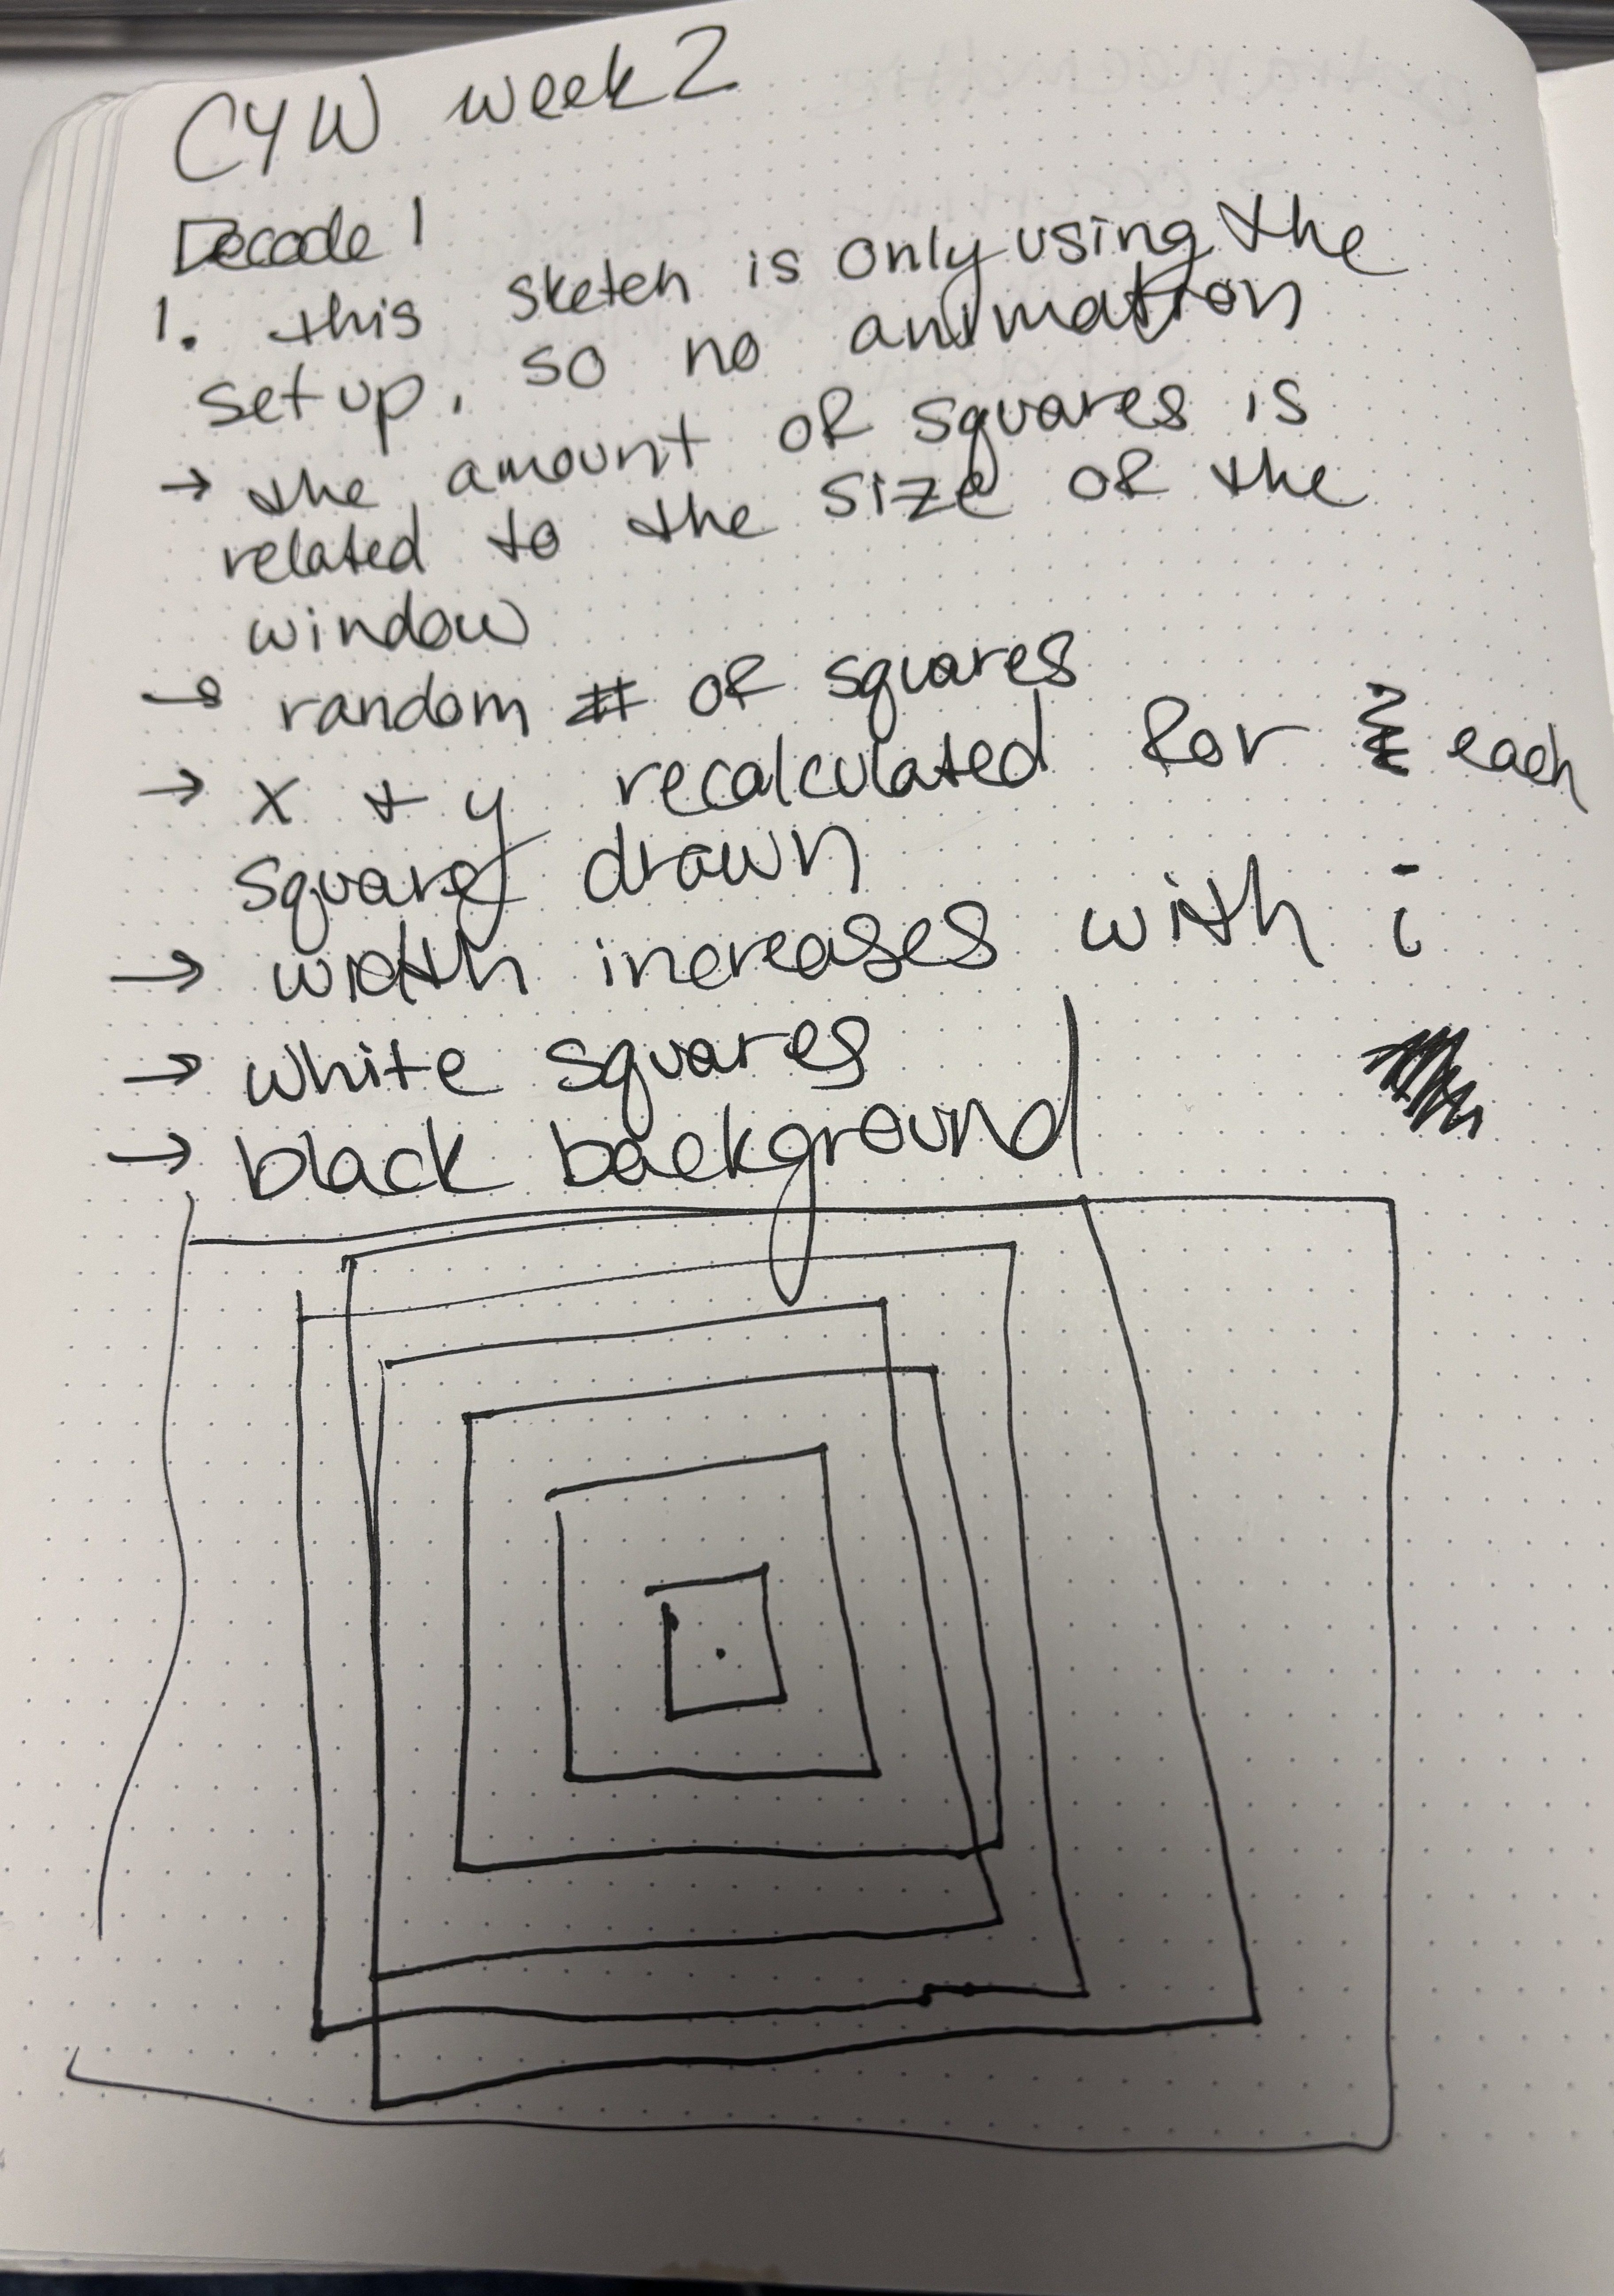 CYW week 2
Decode 1
1. this sketch is only using the
set up, so no animation
→ the amount of squares is
related to the size of the
window
→ random # of squares
→ x + y recalculated for each
square drawn
→ width increases with i
→ white squares
→ black background